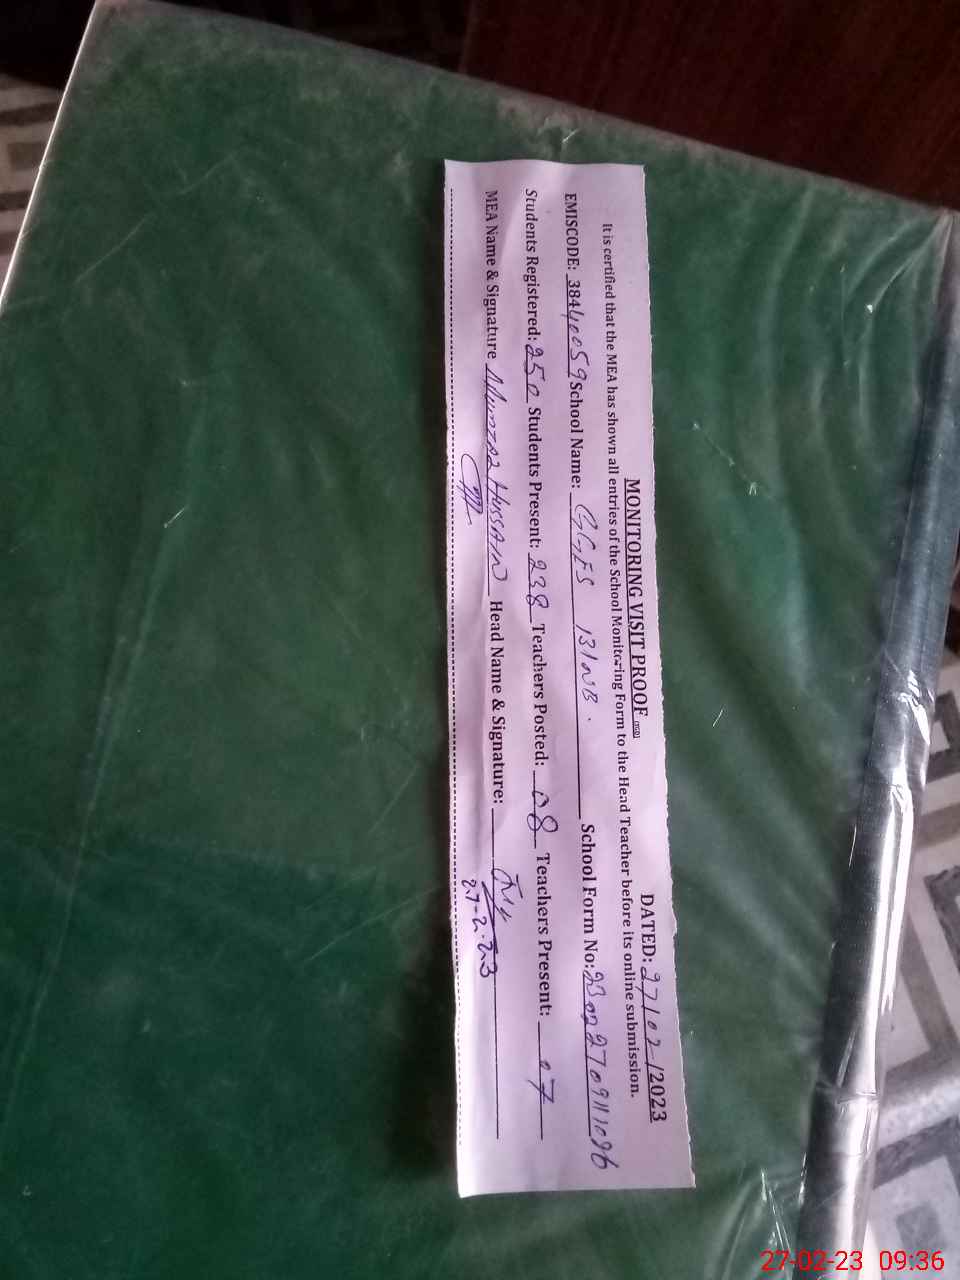 MONITORING VISIT PROOF DATED: 27/02/2023
It is certified that the MEA has shown all entries of the School Monitoring Form to the Head Teacher before its online submission.
EMISCODE: 38440059 School Name: GGES 131NB. School Form No: 23022709111096
Students Registered: 250 Students Present: 238 Teachers Posted: 08 Teachers Present: 07
MEA Name & Signature Mumtaz Hussain Head Name & Signature:
27-2-23
27-02-23 09:36